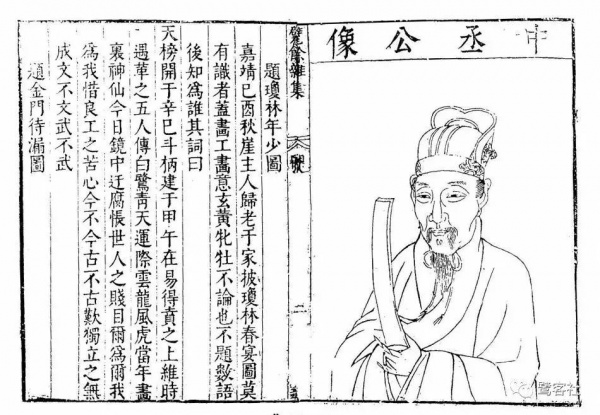 中丞公像
甓餘雜集
二
題瓊林年少圖
嘉靖己酉秋崖主人歸老于家披瓊林春宴圖莫
有識者蓋畫工畫意玄黃牝牡不論也不題數語
後知爲誰其詞曰
天榜開于辛巳斗柄建于甲午在易得賁之上維時
遇革之五人傳白鷺靑天運際雲龍風虎當年畫
裏神仙今日鏡中迂腐悵世人之賤目爾爲爾我
爲我惜良工之苦心今不今古不古歎獨立之無
成文不文武不武
題金門待漏圖
鹭客社